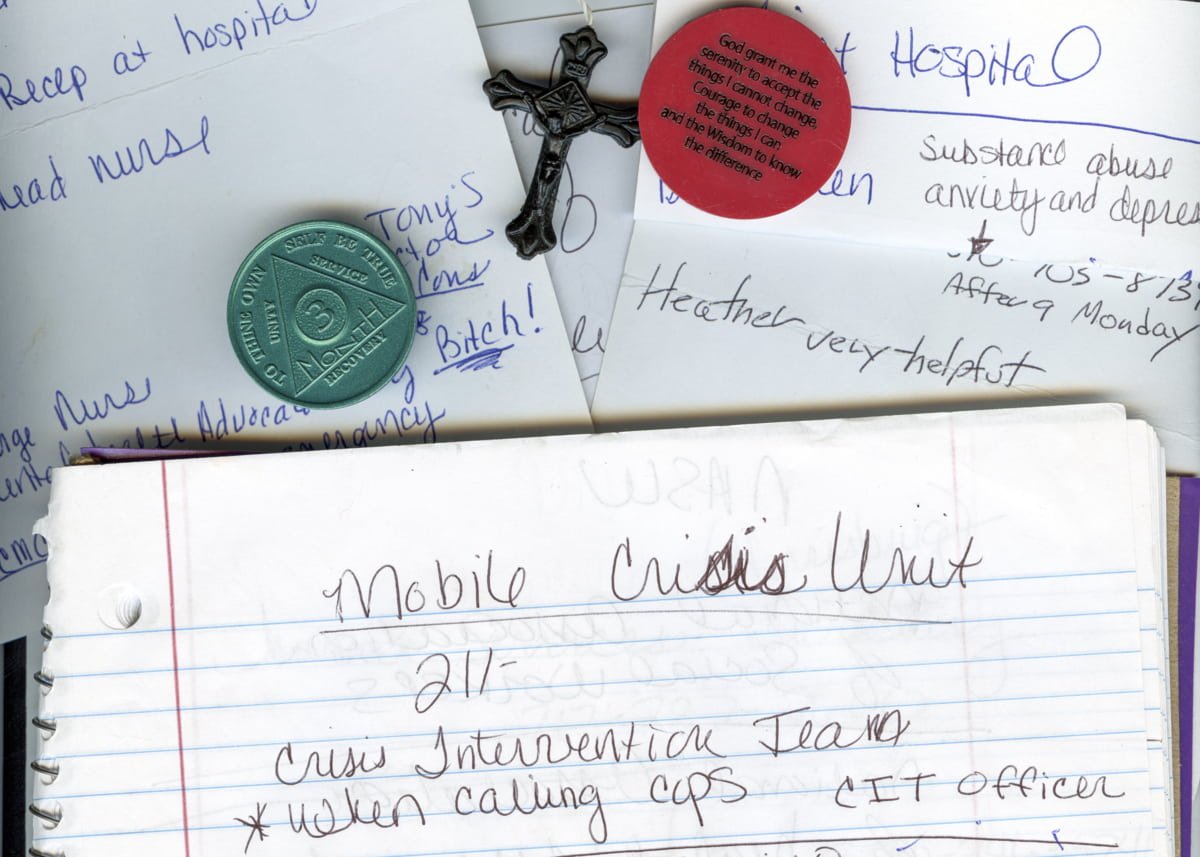 Recep at hospital
Head nurse
Tony's
Bitch!
Nurse
Health Advoca
TO THINE OWN SELF BE TRUE
UNITY
SERVICE
RECOVERY
3
MONTH
God grant me the
serenity to accept the
things I cannot change,
Courage to change
the things I can,
and the Wisdom to know
the difference
Hospital
Substance abuse
anxiety and depres
After 9 Monday
Heather very helpful
Mobile Crisis Unit
211-
Crisis Intervention Team
* When calling cops CIT Officer